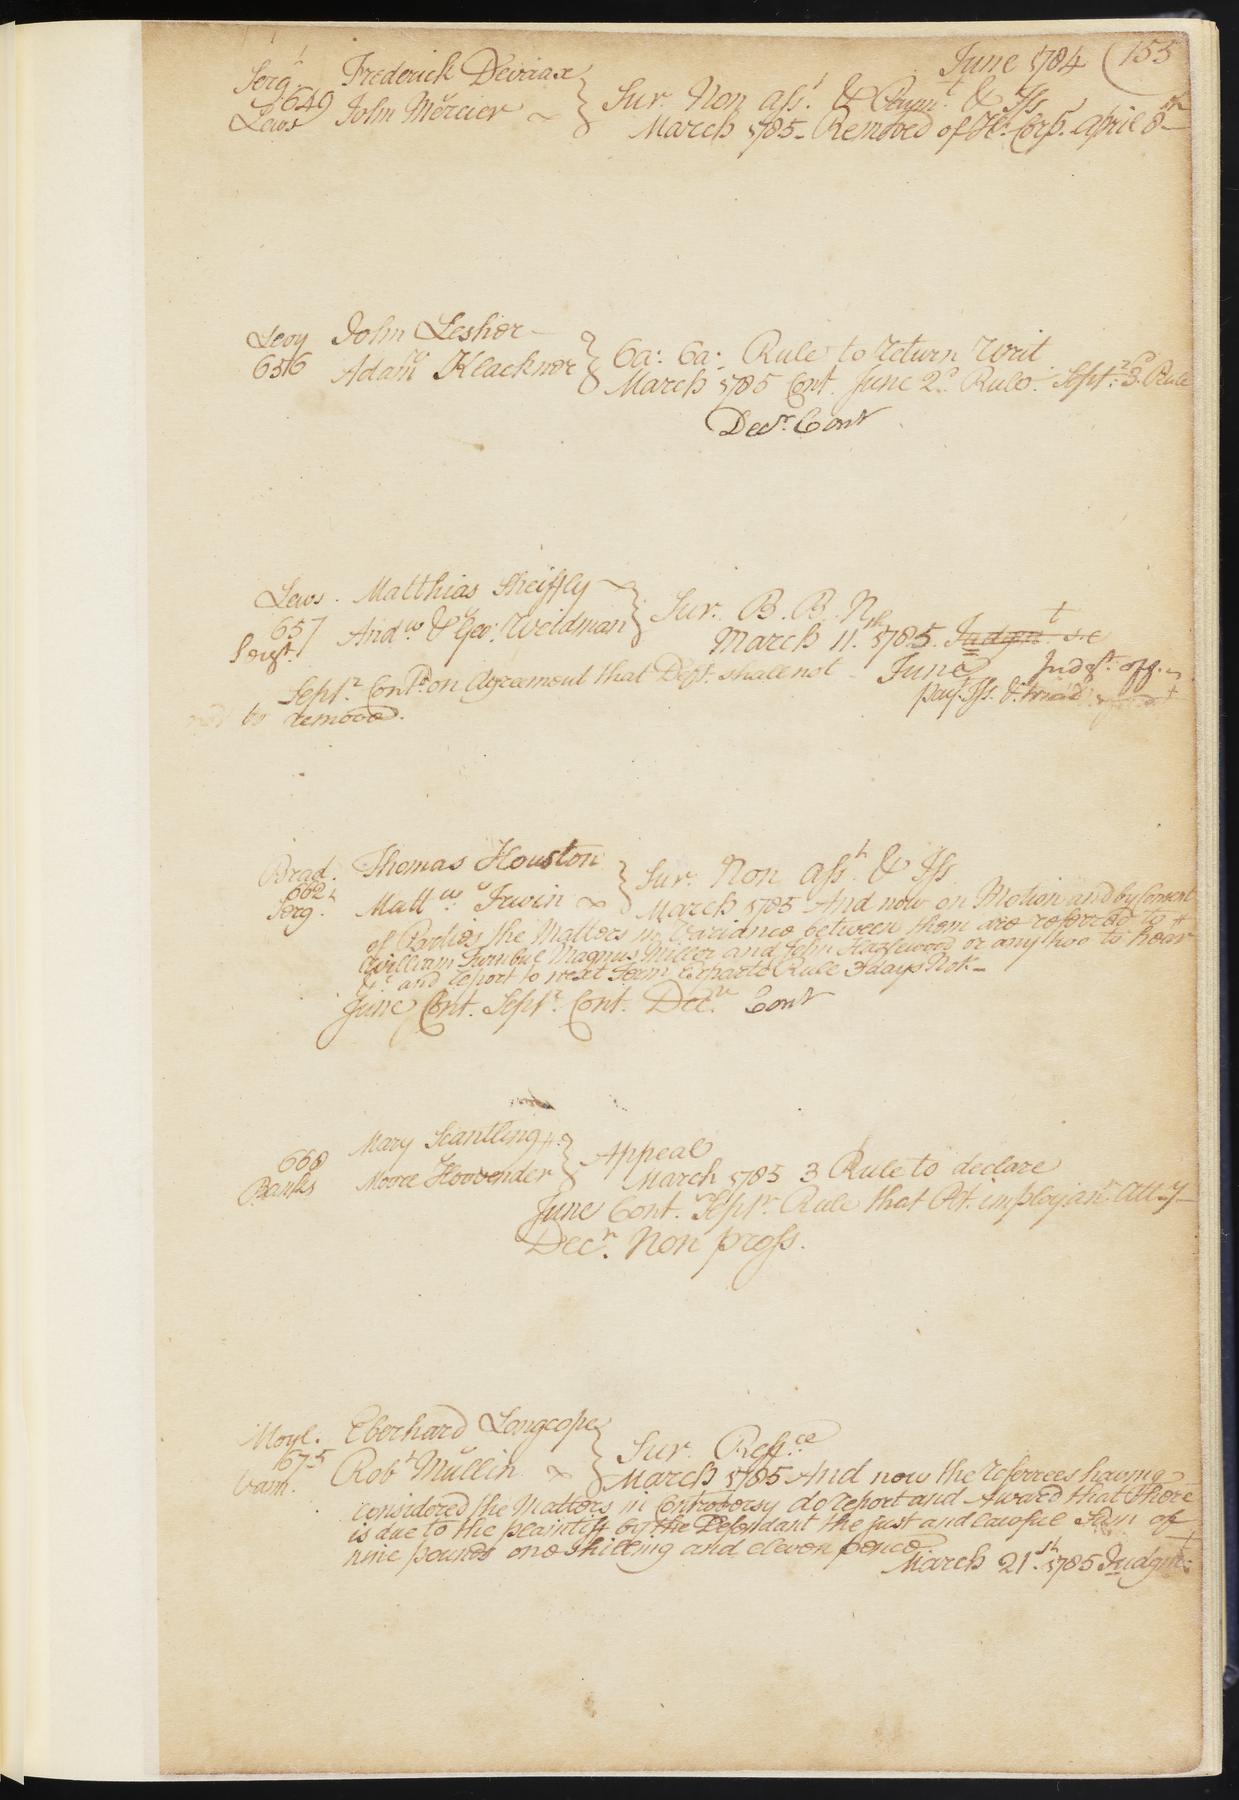 June 1784 (155
Serg.t Frederick Deveiax
649 John Mercier Sur. Non ass.t & Paym.t & Iss
Lews March 1785 Removed of H. Corp. April 8th
Levy John Lesher
656 Adam Klackner Ca: Sa: Rule to return Writ
March 1785 Cont. June 2.d Rule. Sept.r 3.d Rule
Decr. Cont
Lews. Matthias Sheiffly
657 And.w & Geo: Weidman Sur. B. B. N
Sergt. March 11.th 1785. Judgm.t s.e
Sept.r Cont.d on Agreement that Deft. shall not June Judgt. off.
pay. Iss.
to remove.
Brad. Thomas Houston
662 Matt.w Irwin Sur. Non ass.t & Iss
Serg. March 1785 And now on Motion and by Consent
of Parties the Matters in Variance between them are referred to
William Turnbul Magnus Miller and John Hazlewood or any two to hear
&.c and report to next Term Exparte Rule 3 days Not.
June Cont. Sept.r Cont. Dec.r Cont
Mary Scantling
668 Moore Hoovender Appeal
Banks March 1785 3 Rule to declare
June Cont. Sept.r Rule that Plt. imploy an Att.y
Decr. Non pross.
Moyl. Eberhard Longcope
675 Rob.t Mullin Sur. Reff.ce
Vam. March 1785 And now the referrees having
considered the Matters in Controversy do report and Award that there
is due to the plaintiff by the Defendant the just and lawful Sum of
nine pounds one shilling and eleven pence
March 21.st 1785 Judgm.t